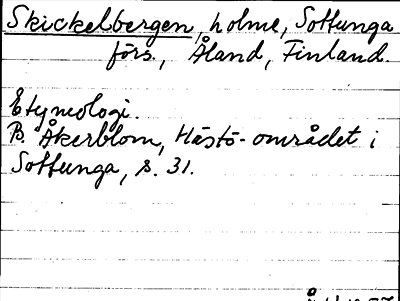 Skickelbergen, holme, Sottunga
förs., Åland, Finland.
Etymologi.
B. Åkerblom, Hästö-området i
Sottunga, s. 31.